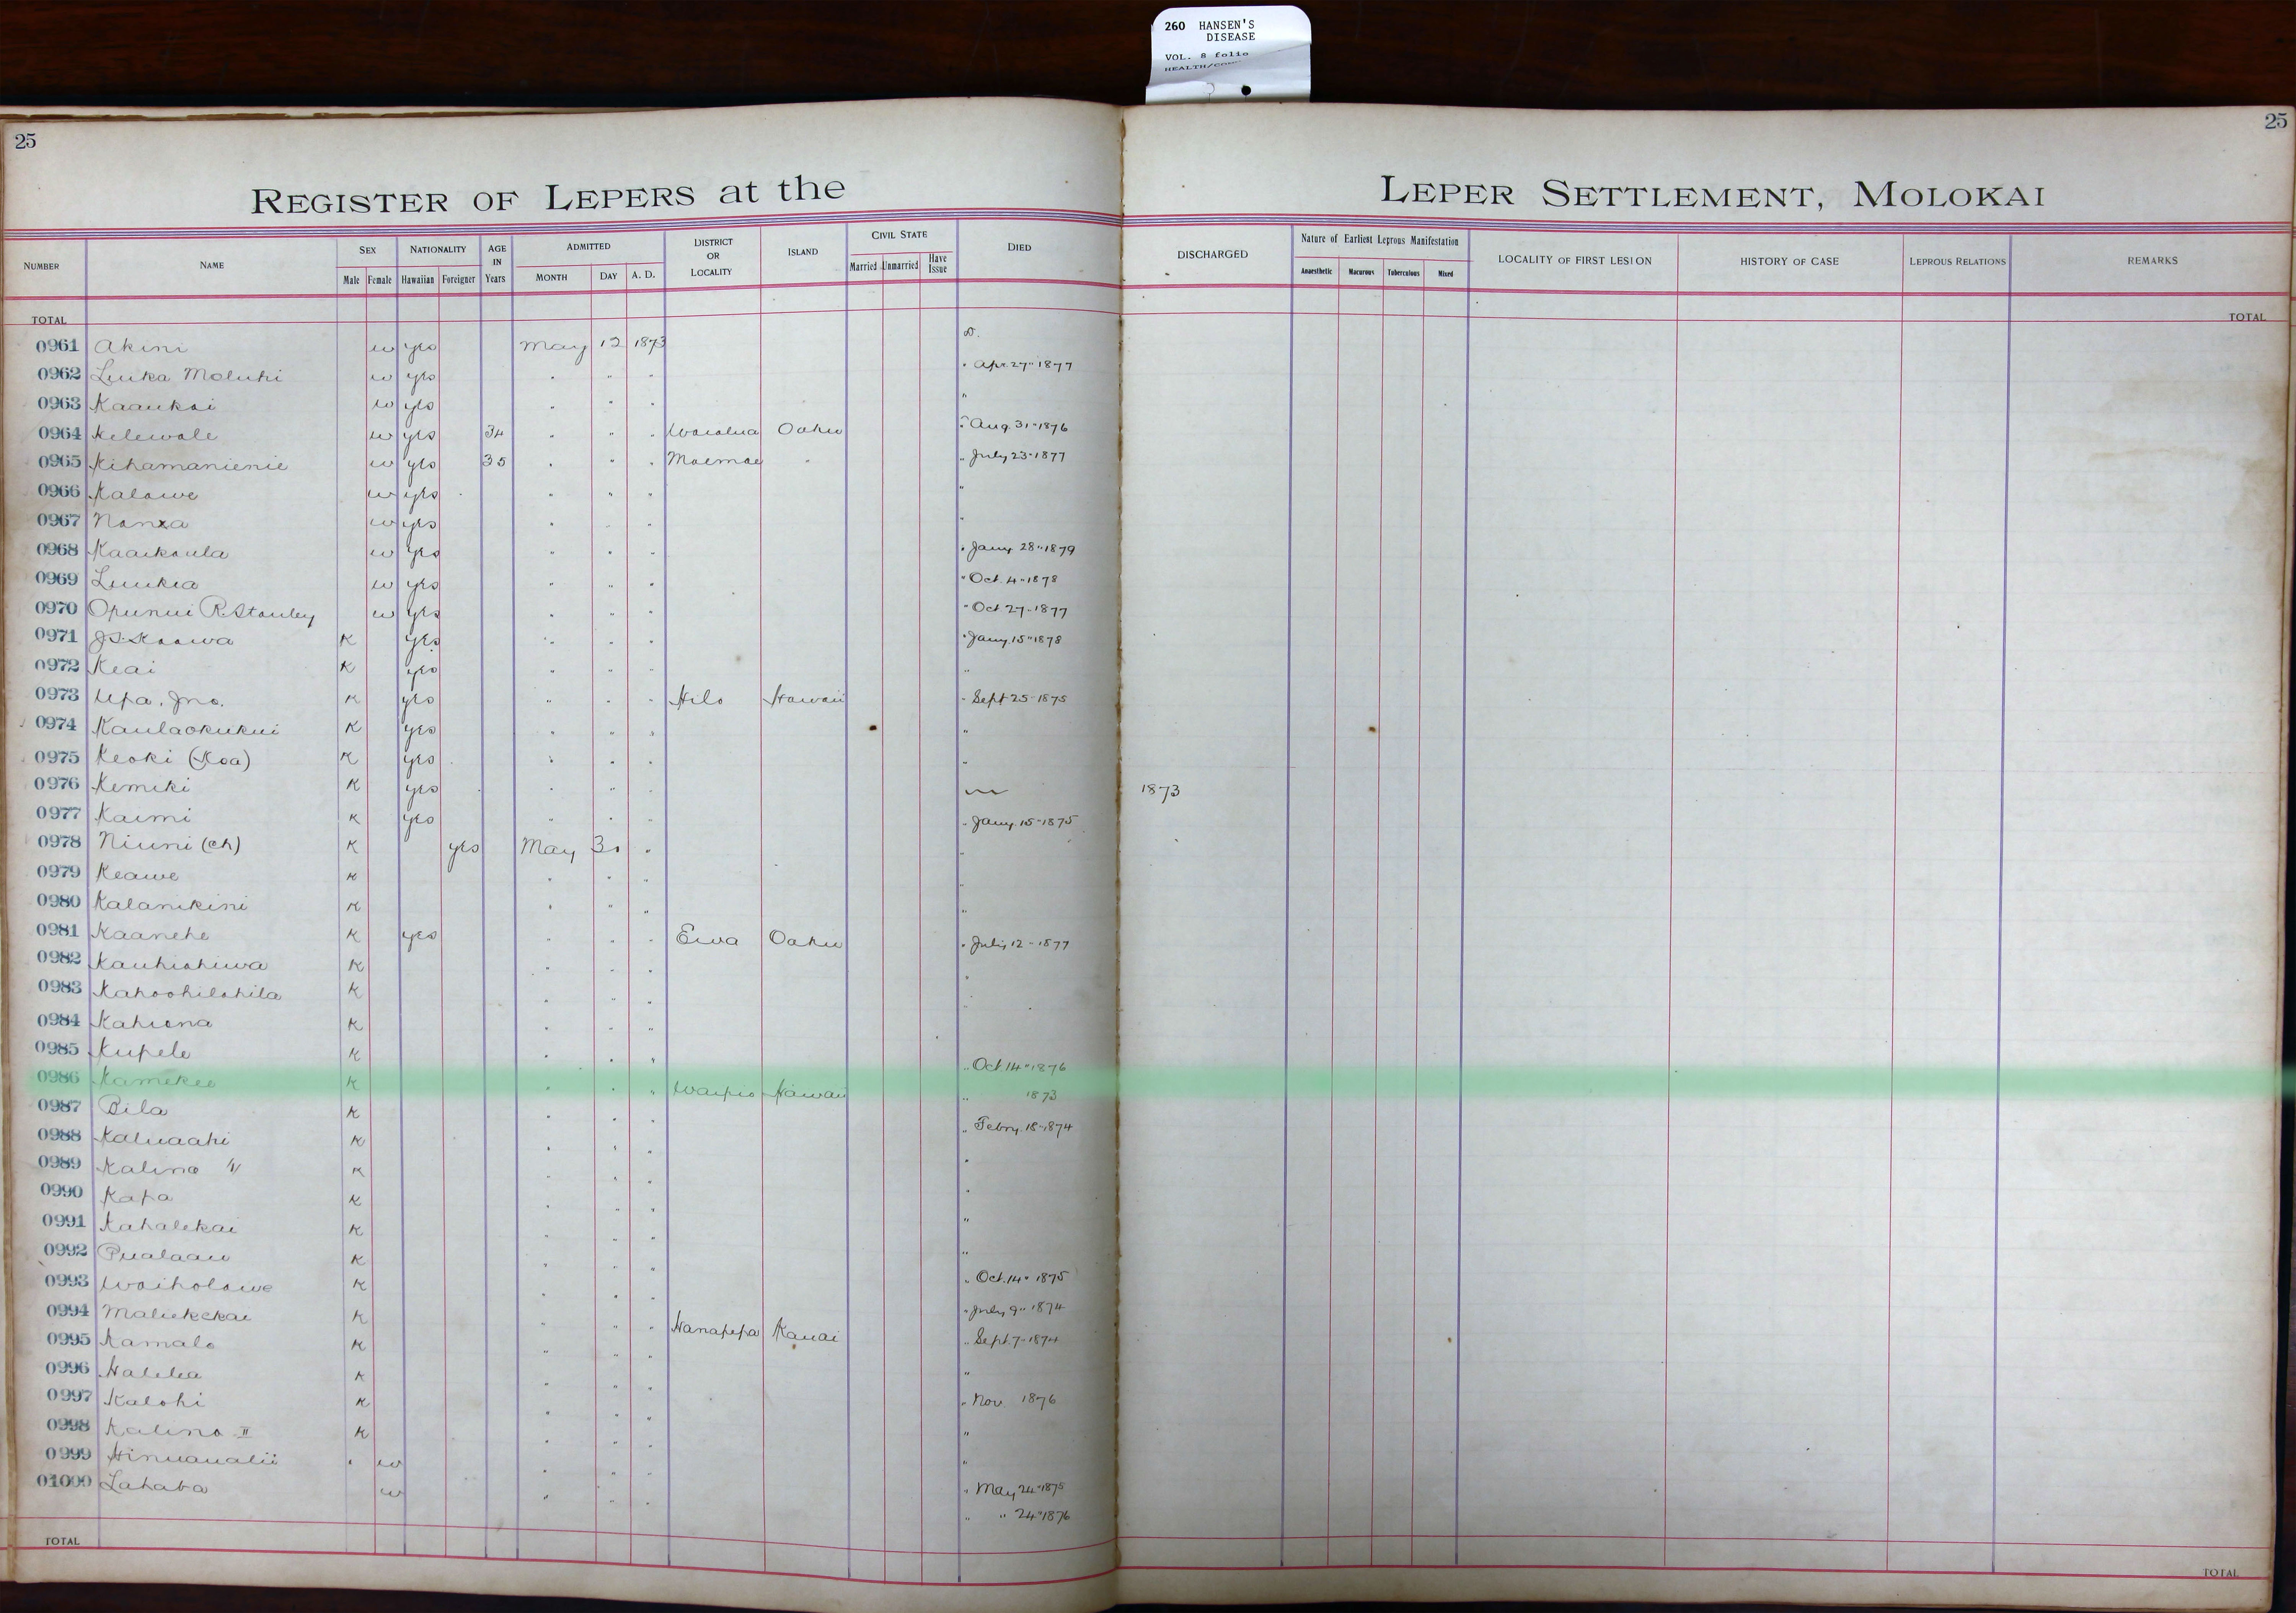 260 HANSEN'S
DISEASE
VOL. 8 folio
25
25
REGISTER OF LEPERS at the LEPER SETTLEMENT, MOLOKAI
NUMBER NAME SEX Male Female NATIONALITY Hawaiian Foreigner AGE IN Years ADMITTED MONTH DAY A. D. DISTRICT OR LOCALITY ISLAND CIVIL STATE Married Unmarried Have Issue DIED DISCHARGED Nature of Earliest Leprous Manifestation Anaesthetic Macurous Tuberculous Mixed LOCALITY OF FIRST LESION HISTORY OF CASE LEPROUS RELATIONS REMARKS
TOTAL TOTAL
0961 Akini w yes May 12 1873 D.
0962 Luika Moluhi w yes " " " " Apr. 27" 1877
0963 Kaaukai w yes " " " "
0964 Kelewale w yes 34 " " " Waialua Oahu " Aug. 31" 1876
0965 Kihamanienie w yes 35 " " " Moemoe " " July 23" 1877
0966 Kalowe w yes " " " "
0967 w yes " " " "
0968 Kaaikaula w yes " " " " Jany. 28" 1879
0969 Luukia w yes " " " " Oct. 4" 1878
0970 Opunui R. Stanley w yes " " " " Oct 27" 1877
0971 J.S. Kaawa K yes " " " " Jany. 15" 1878
0972 Keai K yes " " " "
0973 Upa. Jno. K yes " " " Hilo Hawaii " Sept 25" 1875
0974 Kaulaokukui K yes " " " "
0975 Keoki (Koa) K yes " " " "
0976 Kemiki K yes " " " 1873
0977 Kaimi K yes " " " " Jany. 15" 1875
0978 Niuni (ch) K yes May 30 " "
0979 Keawe K " " " "
0980 Kalanikini K " " " "
0981 Kaanehe K yes " " " Ewa Oahu " July 12" 1877
0982 Kauhiohiwa K " " " "
0983 Kahoohilohila K " " " "
0984 Kahiona K " " "
0985 Kupele K " " " " Oct. 14" 1876
0986 Kamekee K " " " Waipio Hawaii " 1873
0987 Pila K " " " " Febry. 18" 1874
0988 Kaluaahi K " " " "
0989 Kalino K " " " "
0990 Kapa K " " " "
0991 Kahalekai K " " " "
0992 Pualaau K " " " " Oct. 14" 1875
0993 Waiholowe K " " " " July 9" 1874
0994 Maliekekai K " " " Hanapepa Kauai " Sept. 7" 1874
0995 Kamalo K " " " "
0996 Halelea K " " " " Nov. 1876
0997 Kalohi K " " " "
0998 Kalino II K " " " "
0999 Hinuaualii " w " " " " May 24" 1875
01000 Lahaba w " " " " " 24" 1876
TOTAL TOTAL